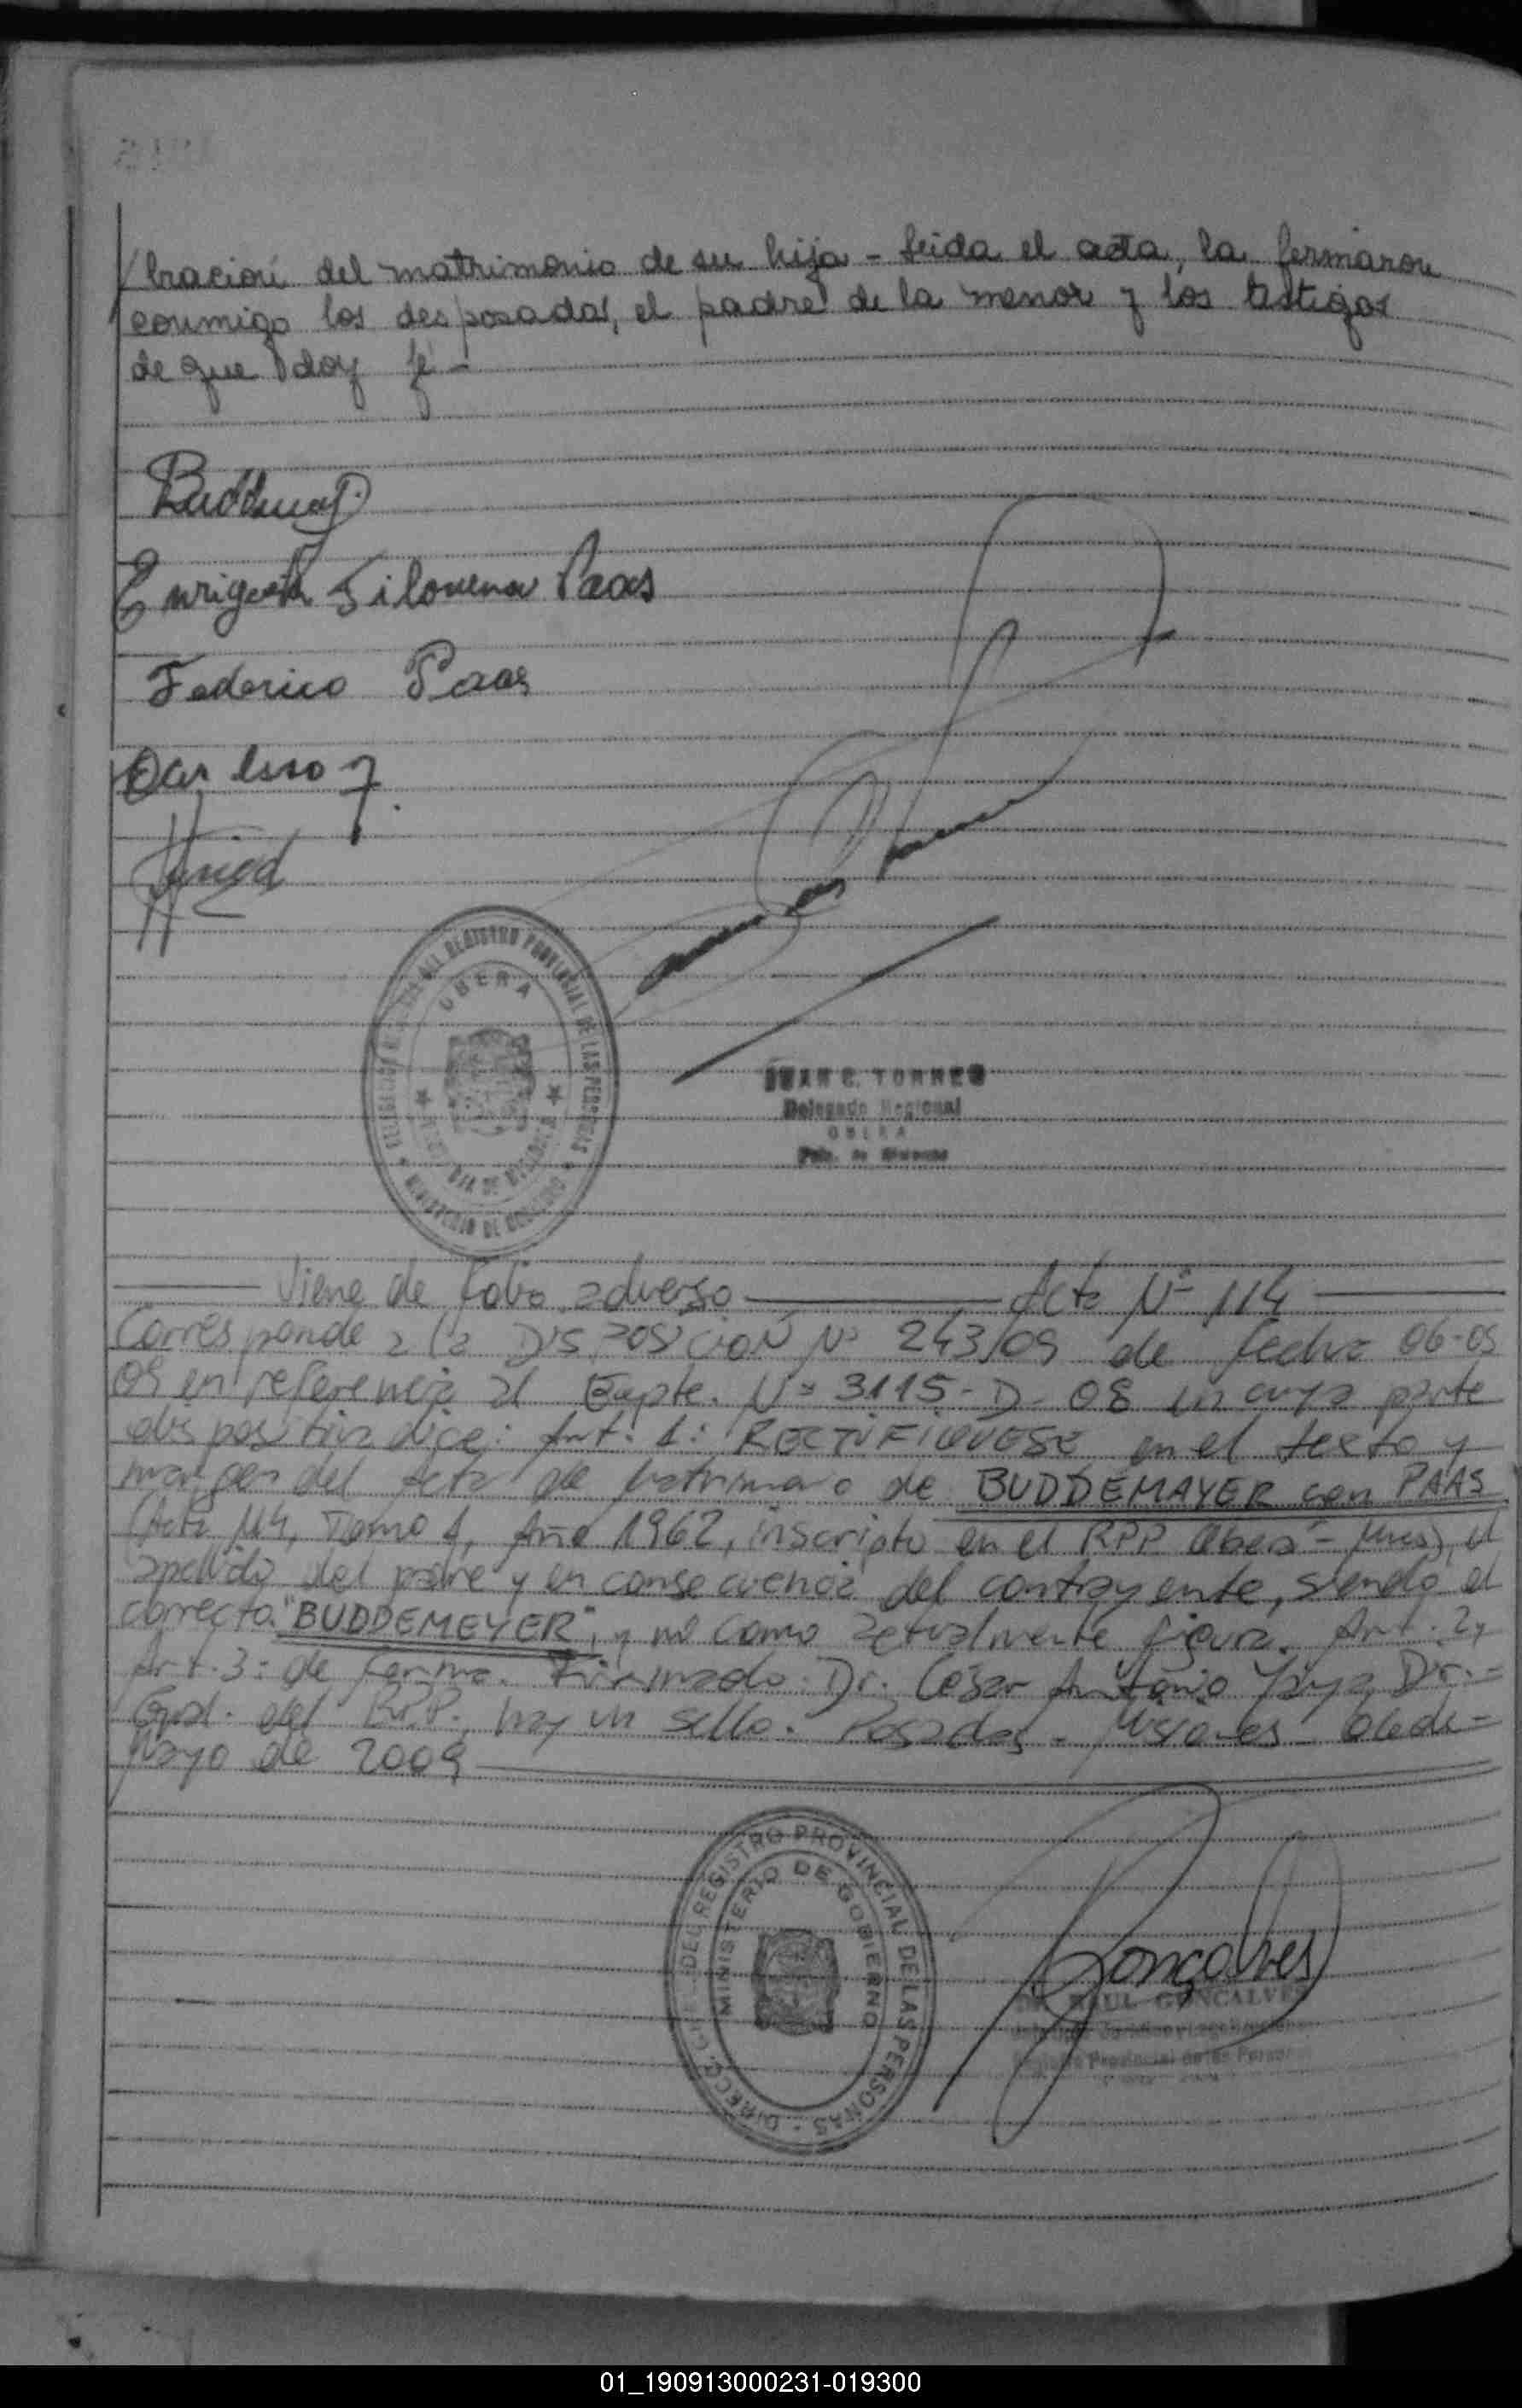 bracion del matrimonio de su hija - Leida el acta, la firmaron
conmigo los desposados, el padre de la menor y los testigos
de que doy fé -
Enriqueta Filomena Paas
Federico Paas
REGISTRO PROVINCIAL DE LAS PERSONAS
OBERA
MINISTERIO DE GOBIERNO
JUAN C. TORRES
Delegado Regional
OBERA
Pcia. de Misiones
Viene de folio adverso Acta Nº 114
Corresponde a la DISPOSICION Nº 243/09 de fecha 06-05
09 en referencia al Expte. Nº 3115-D-08 en cuya parte
dispositiva dice: Art. 1: RECTIFIQUESE en el texto y
margen del acta de matrimonio de BUDDEMAYER con PAAS
(Acta 114, Tomo 1, Año 1962, inscripto en el RPP Oberá - Mnes), el
apellido del padre y en consecuencia del contrayente, siendo el
correcto "BUDDEMEYER", y no como actualmente figura. Art. 2y
Art. 3: de forma. Firmado: Dr. César Antonio Dr.=
Gral. del R.P.P., hay un sello. Posadas - Misiones
Mayo de 2009
DEL REGISTRO PROVINCIAL DE LAS PERSONAS
MINISTERIO DE GOBIERNO
Gonçalves
RAUL GONCALVES
Registro Provincial de las Personas
01_190913000231-019300